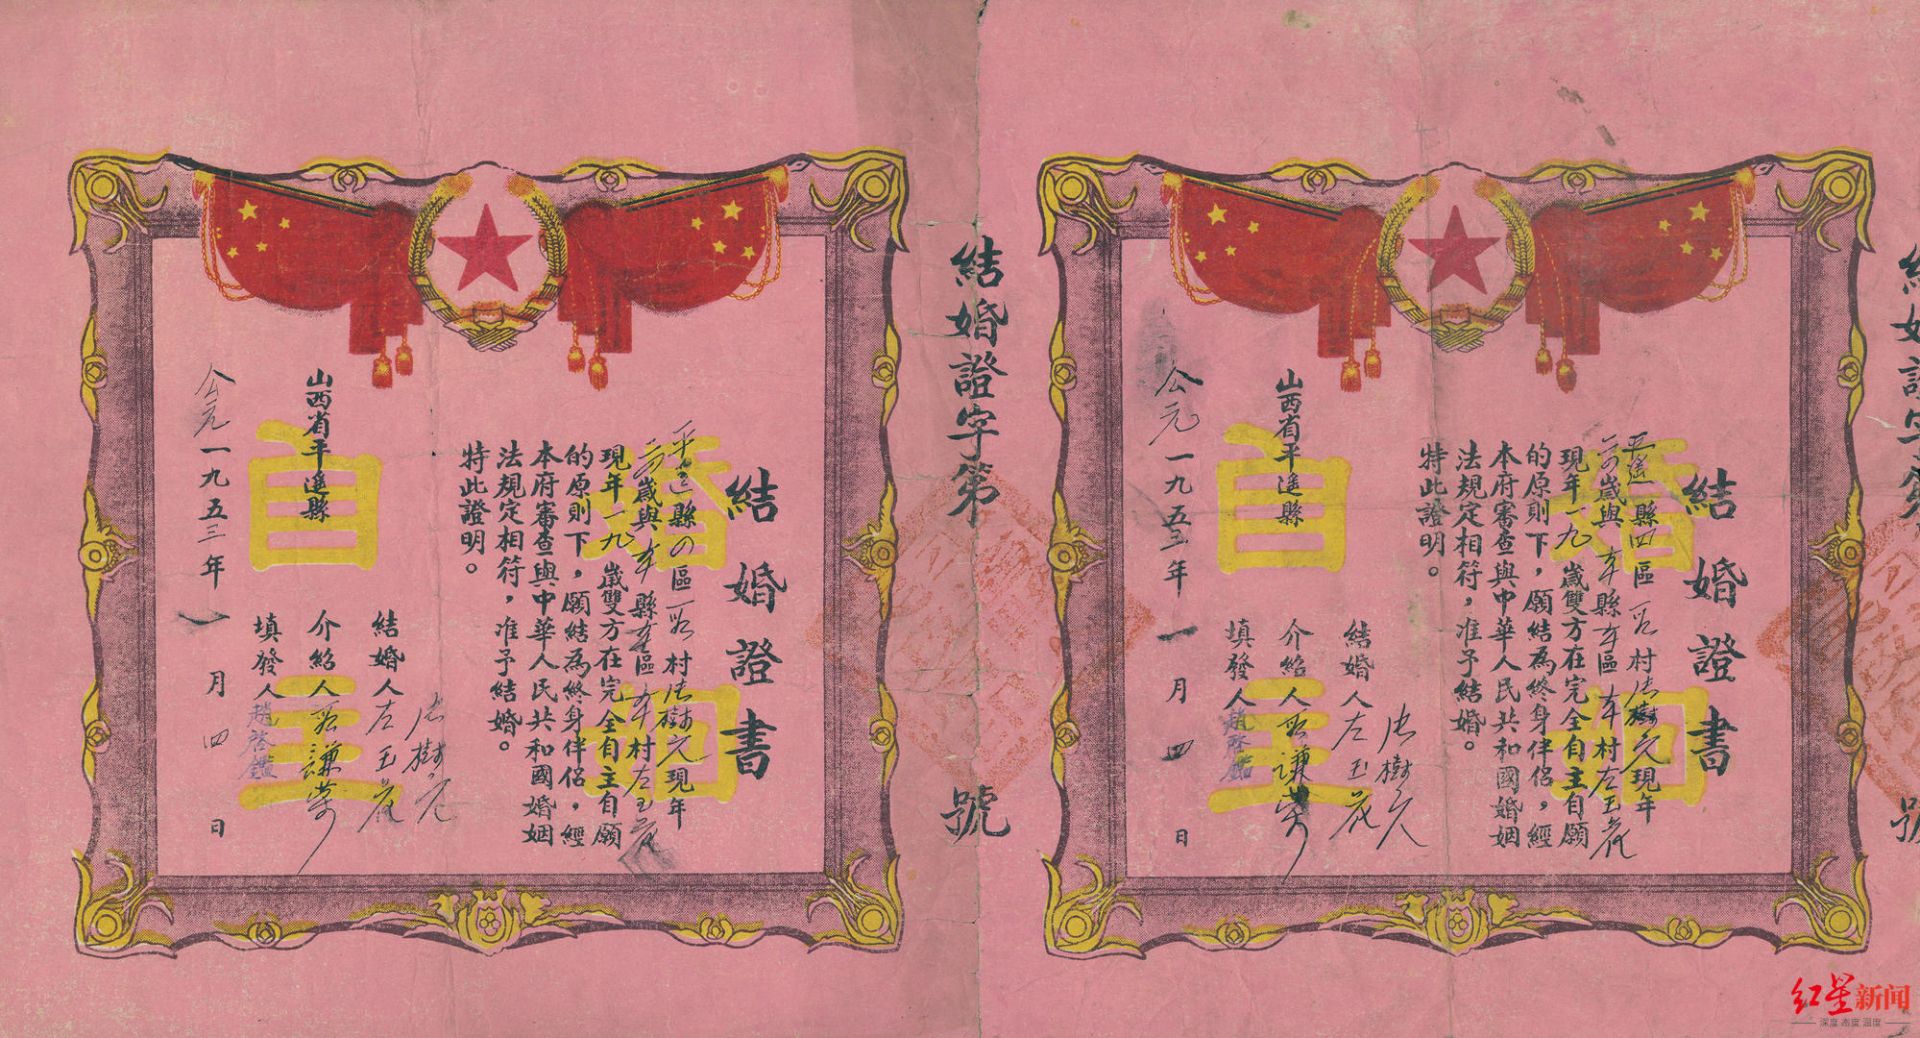 結婚證字第 號
結婚證書
平遙縣四區 村 樹元現年
歲與本縣本區本村左玉花
現年一九歲雙方在完全自主自願
的原則下，願結為終身伴侶，經
本府審查與中華人民共和國婚姻
法規定相符，准予結婚。
特此證明。
樹元
結婚人左玉花
介紹人 謙榮
填發人趙啓鑑
山西省平遙縣
公元一九五三年一月四日
婚姻自主
結婚證字第 號
結婚證書
平遙縣の區 村 樹元現年
歲與本縣本區本村左玉花
現年一九歲雙方在完全自主自願
的原則下，願結為終身伴侶，經
本府審查與中華人民共和國婚姻
法規定相符，准予結婚。
特此證明。
樹元
結婚人左玉花
介紹人 謙榮
填發人趙啓鑑
山西省平遙縣
公元一九五三年一月四日
婚姻自主
红星新闻
深度 态度 温度